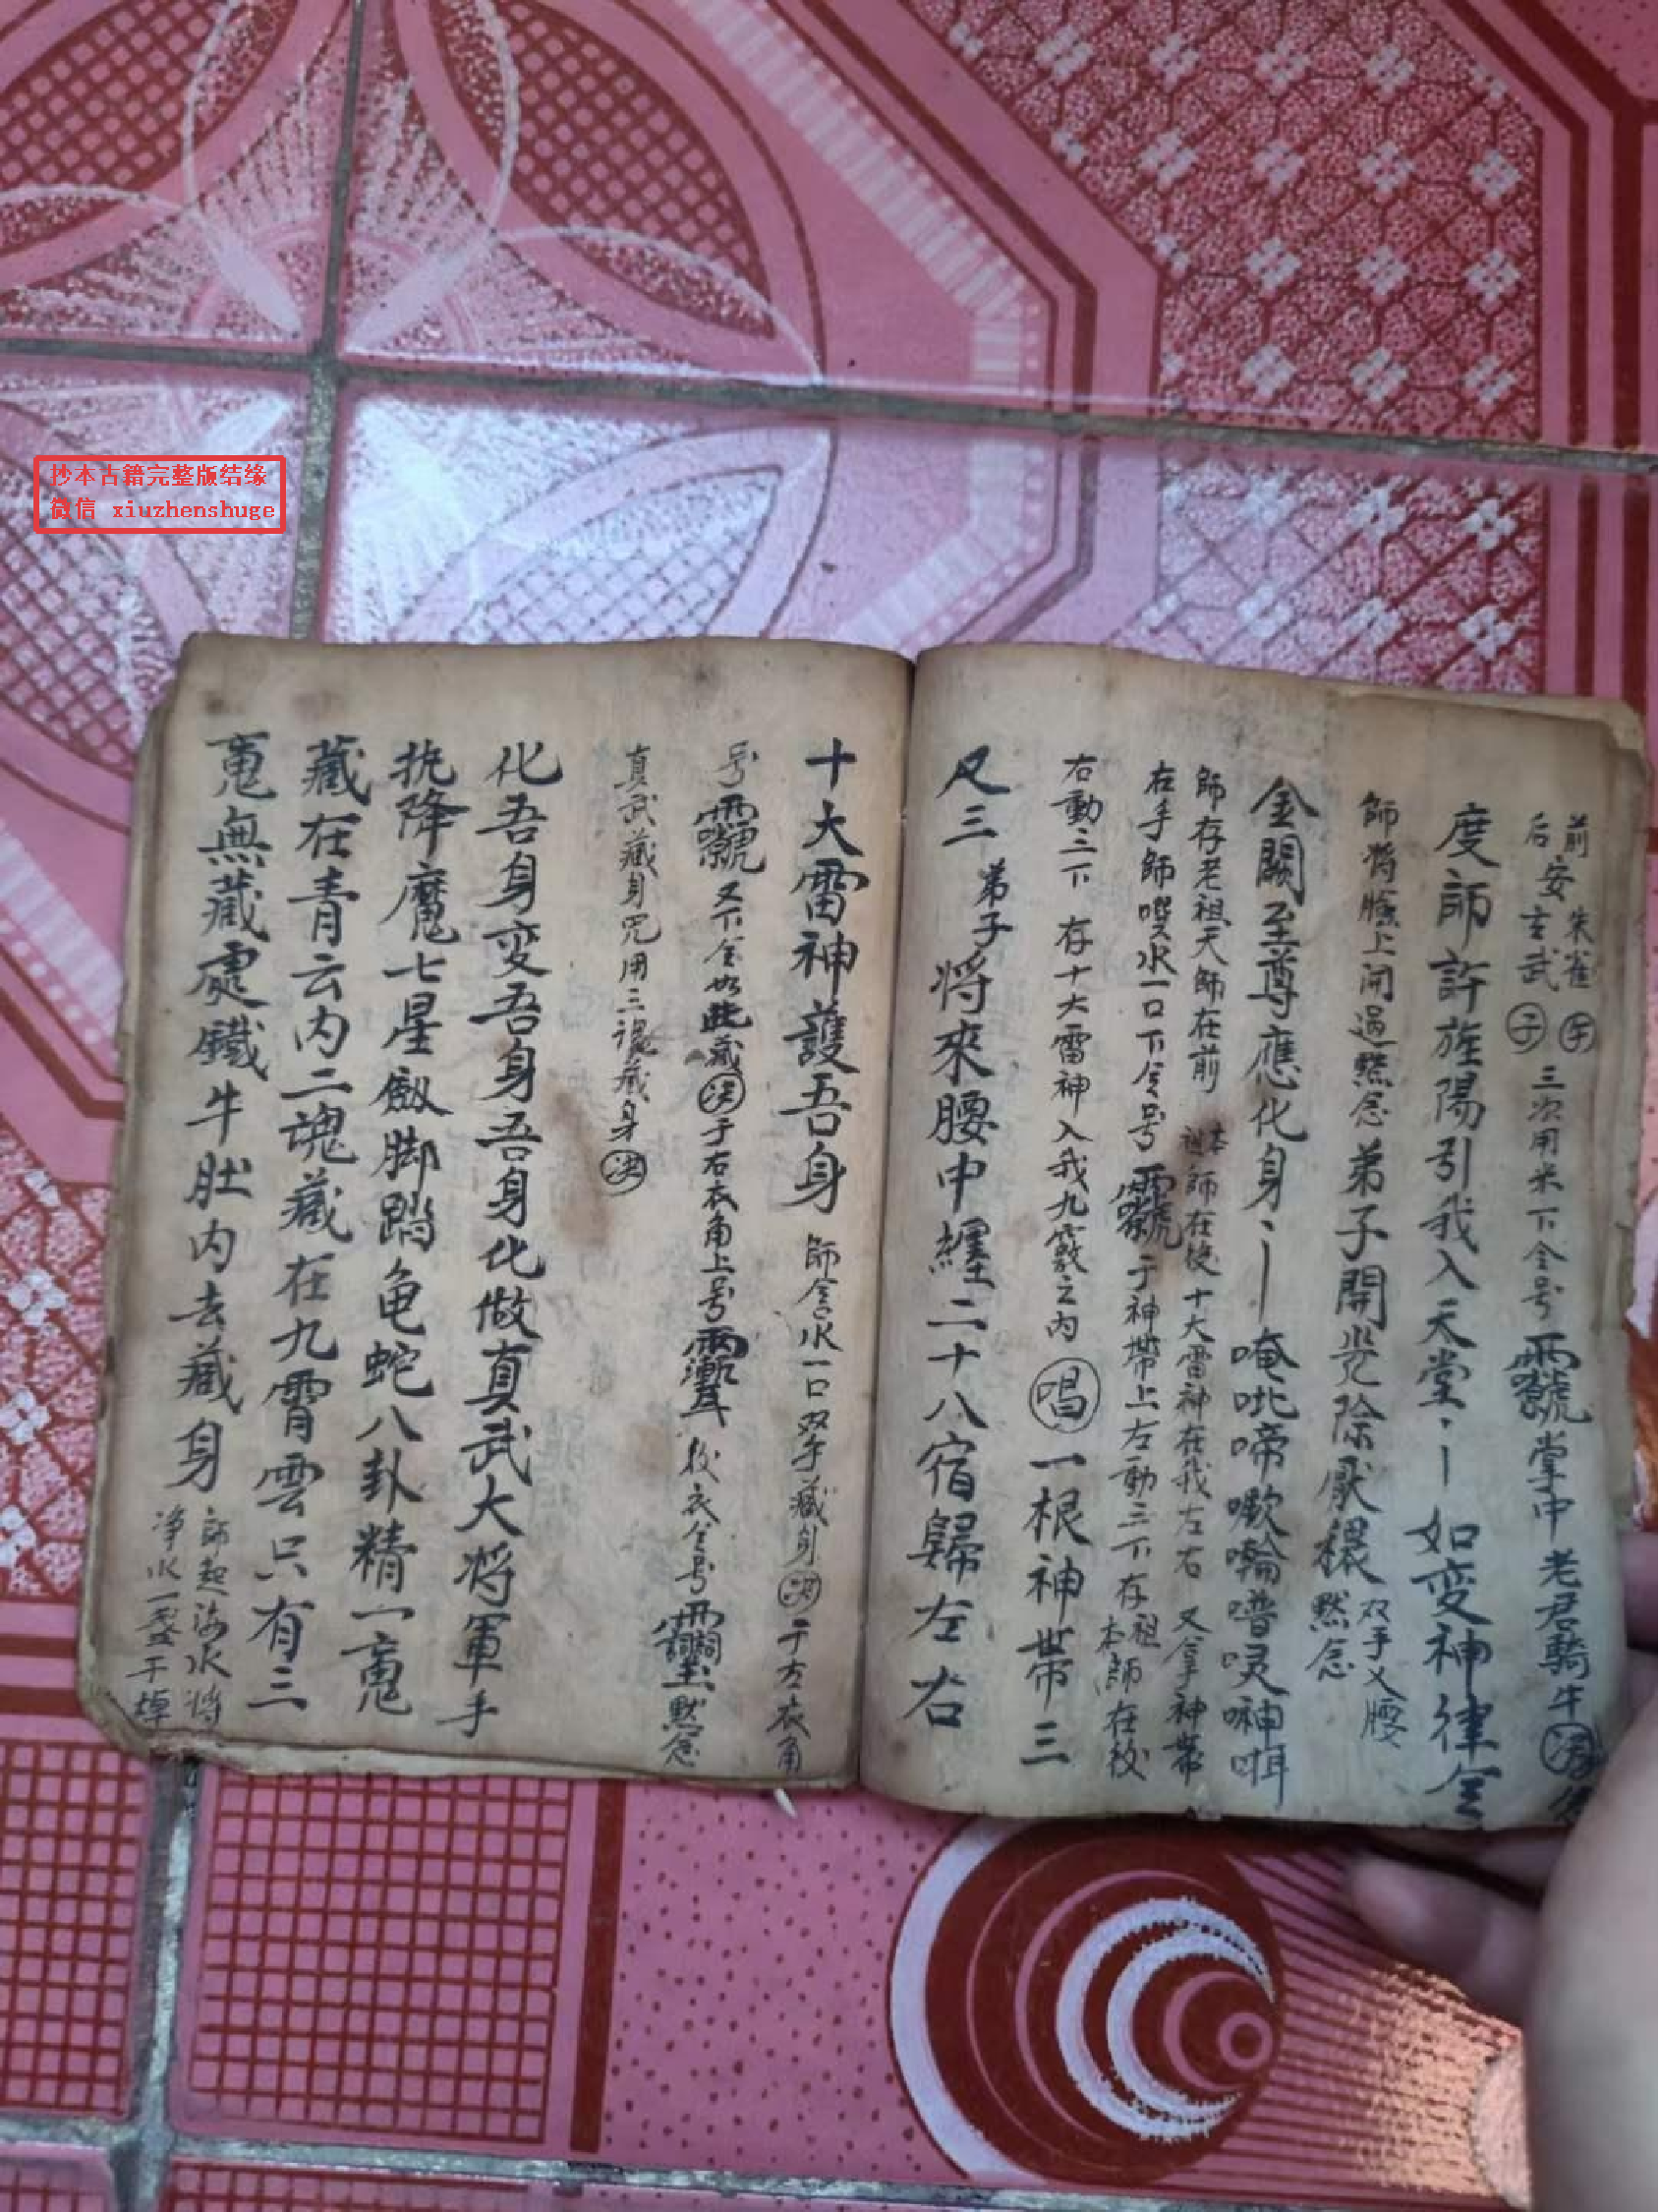 抄本古籍完整版结缘
微信 xiuzhenshuge
前朱雀午
后安玄武子
三次用米下令号 掌中老君騎牛
度師許旌陽引我入天堂丶丨如変神律令
師将臉上開過黙念弟子開光除厭穢双手乂腰黙念
金闕至尊應化身丶丨唵吡啼嗷㗖噆㖫呻咡
師存老祖天師在前本祖師在後十大雷神在我左右又拿神帶
在手師噀水一口下令号 于神帶上左動三下存祖本師在後
右動三下存十大雷神入我九竅之内唱一根神帶三
尺三弟子将來腰中纏二十八宿歸左右
十大雷神護吾身師含水一口双手藏身决于左衣角
号 又下令如此藏决于右衣角上号 後衣令号 黙念
真武藏身咒用三識藏身决
化吾身変吾身吾身化做真武大将軍手
执降魔七星劔脚踏龟蛇八卦精一䰟
藏在青云内二魂藏在九霄雲只有三
䰟無藏處鐵牛肚内去藏身師起海水将
净水一盔于棹